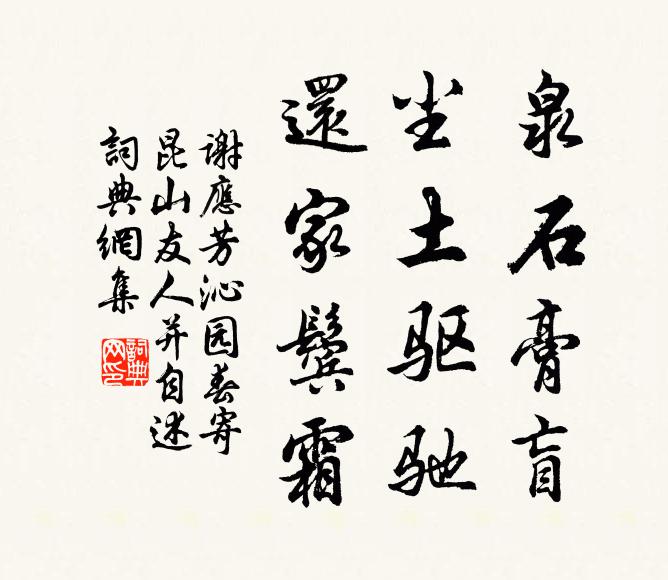 泉石膏肓
尘土驱驰
還家鬓霜
谢應芳沁园春寄
昆山友人并自述
詞典網集
詞典
网印